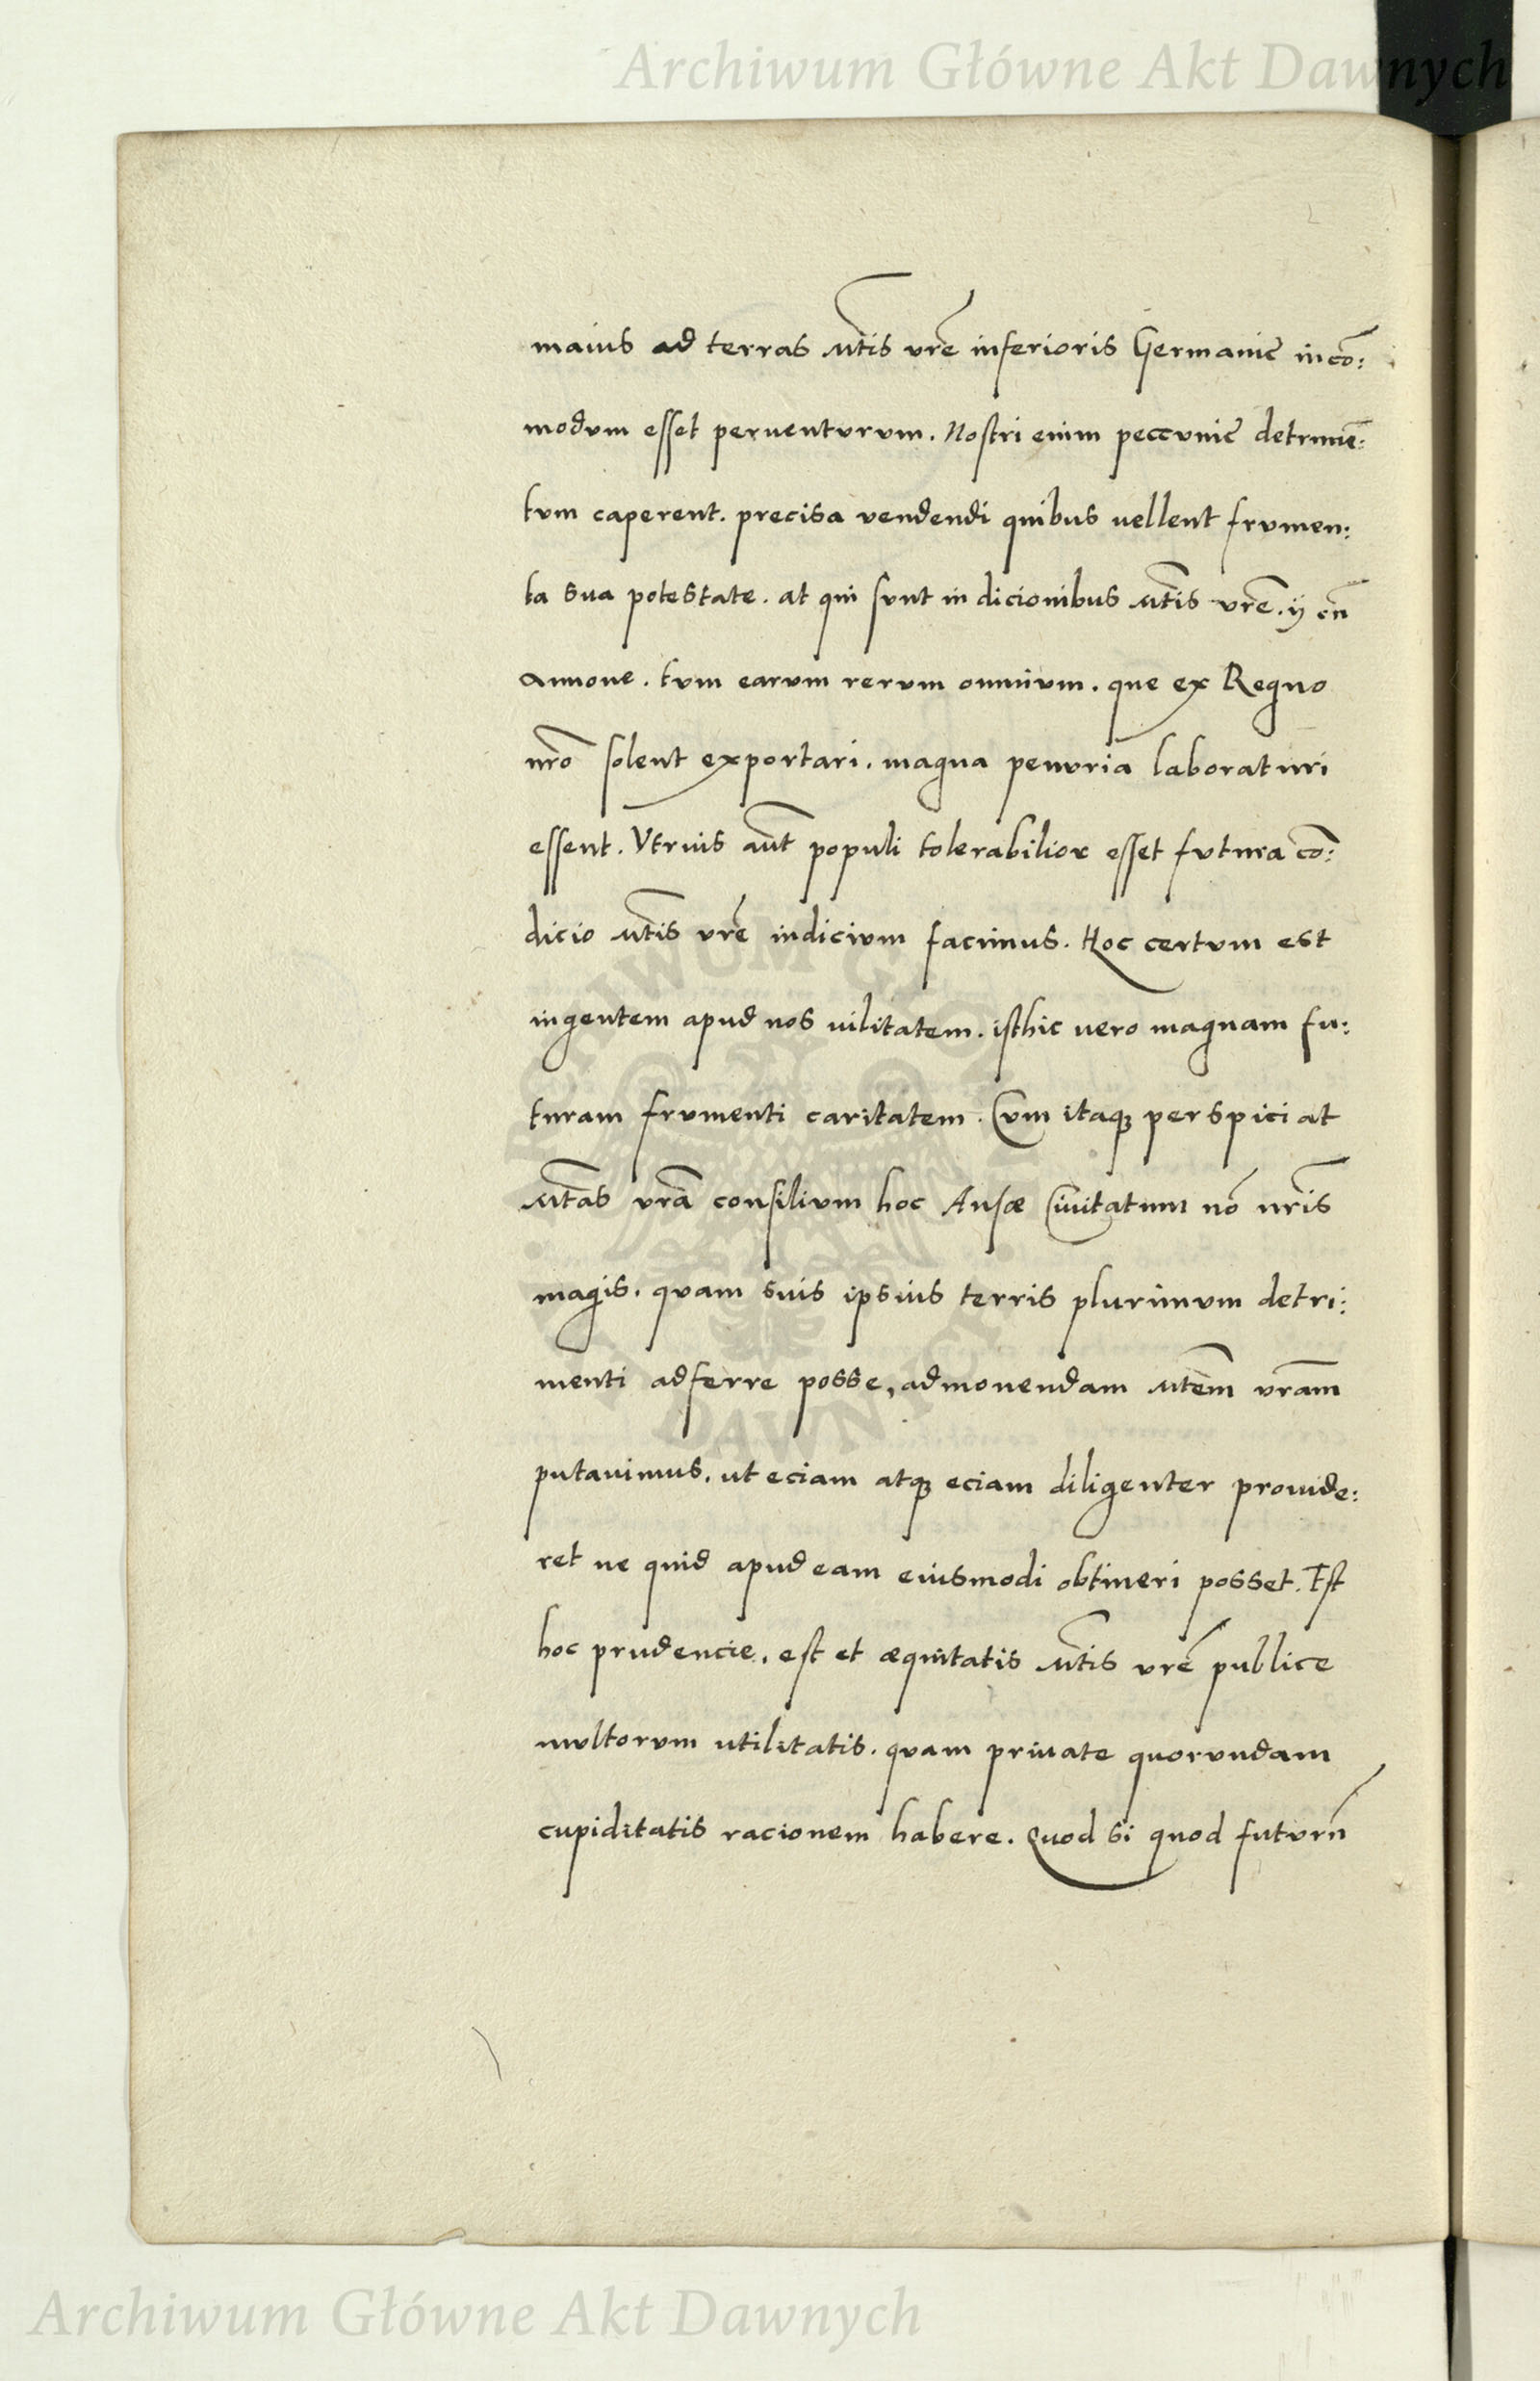 Archiwum Główne Akt Dawnych
maius ad terras Mtis vrẽ inferioris Germanie incõ:
modum esset peruenturum. Nostri enim peccunie detrimẽ:
tum caperent. precisa vendendi quibus vellent frumen:
ta sua potestate. at qui sunt in dicionibus Mtis vrẽ. ij cũ
Annone. tum earum rerum omnium. que ex Regno
nrõ solent exportari. magna penuria laboraturi
essent. Vtrius aũt populi tolerabilior esset futura cõ:
dicio Mtis vrẽ iudicium facimus. Hoc certum est
ingentem apud nos vilitatem. isthic vero magnam fu:
turam frumenti caritatem. Cum itaq; perspiciat
Mtas vrã consilium hoc Ansæ Ciuitatum nõ nrĩs
magis. quam suis ipsius terris plurimum detri:
menti adferre posse, admonendam Mtem vrãm
putauimus. ut eciam atq; eciam diligenter prouide:
ret ne quid apud eam eiusmodi obtineri posset. Est
hoc prudencie. est et æquitatis Mtis vrẽ publice
multorum utilitatis. quam priuate quorundam
cupiditatis racionem habere. Quod si quod futurũ
Archiwum Główne Akt Dawnych